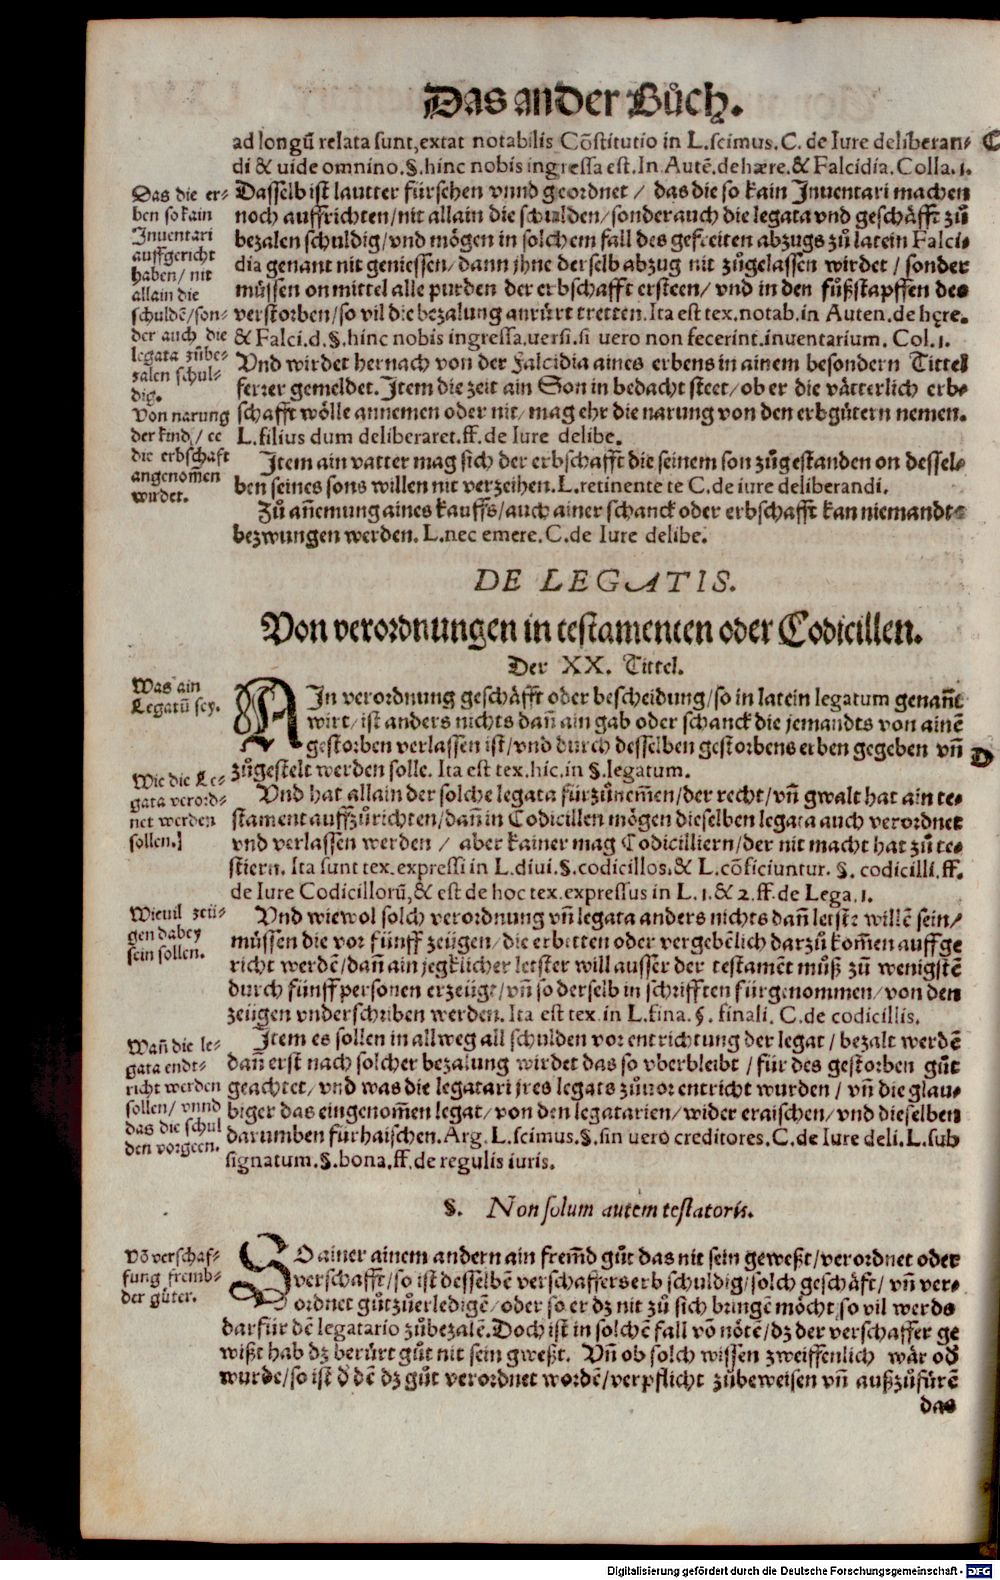 Das ander Bůch.
ad longū relata sunt, extat notabilis Cōstitutio in L. scimus. C. de Iure deliberan-
C
di & uide omnino. §. hinc nobis ingressa est. In Autē. de hære. & Falcidia. Colla. 1.
Dasselb ist lautter fürsehen vnnd geordnet / das die so kain Inuentari machen
noch auffrichten / nit allain die schulden / sonder auch die legata vnd geschäfft zů
bezalen schuldig / vnd mögen in solchem fall des gefreiten abzugs zů latein Falci-
dia genant nit geniessen / dann jhne derselb abzug nit zůgelassen wirdet / sonder
müssen on mittel alle purden der erbschafft ersteen / vnd in den fůßstapffen des
verstorben / so vil die bezalung anrürt tretten. Ita est tex. notab. in Auten. de hęre.
& Falci. d. §. hinc nobis ingressa. uersi. si uero non fecerint. inuentarium. Col. 1.
Das die er-
ben so kain
Inuentari
auffgericht
haben / nit
allain die
schuldē / son-
der auch die
legata zůbe-
zalen schul-
dig.
Vnd wirdet hernach von der Falcidia aines erbens in ainem besondern Tittel
ferrer gemeldet. Item die zeit ain Son in bedacht steet / ob er die vätterlich erb-
schafft wölle annemen oder nit / mag ehr die narung von den erbgütern nemen.
L. filius dum deliberaret. ff. de Iure delibe.
Von narung
der kind / ee
die erbschaft
angenom̄en
wirdet.
Item ain vatter mag sich der erbschafft die seinem son zůgestanden on dessel-
ben seines sons willen nit verzeihen. L. retinente te C. de iure deliberandi.
Zů an̄emung aines kauffs / auch ainer schanck oder erbschafft kan niemandt
bezwungen werden. L. nec emere. C. de Iure delibe.
DE LEGATIS.
Von verordnungen in testamenten oder Codicillen.
Der XX. Tittel.
Was ain
Legatū sey.
AIn verordnung geschäfft oder bescheidung / so in latein legatum genan̄t
wirt / ist anders nichts dan̄ ain gab oder schanck die jemandts von ainē
gestorben verlassen ist / vnd durch desselben gestorbens erben gegeben vn̄
D
zůgestelt werden solle. Ita est tex. hic. in §. legatum.
Wie die Le-
gata verord-
net werden
sollen.]
Vnd hat allain der solche legata fürzůnem̄en / der recht / vn̄ gwalt hat ain te-
stament auffzůrichten / dan̄ in Codicillen mögen dieselben legata auch verordnet
vnd verlassen werden / aber kainer mag Codicilliern / der nit macht hat zů te-
stiern. Ita sunt tex. expressi in L. diui. §. codicillos. & L. cōficiuntur. §. codicilli. ff.
de Iure Codicillorū, & est de hoc tex. expressus in L. 1. & 2. ff. de Lega. 1.
Wieuil zeü-
gen dabey
sein sollen.
Vnd wiewol solch verordnung vn̄ legata anders nichts dan̄ letste willē sein /
müssen die vor fünff zeügen / die erbetten oder vergebēlich darzů kom̄en auffge
richt werdē / dan̄ ain jegklicher letster will ausser der testamēt můß zů wenigstē
durch fünff personen erzeügt / vn̄ so derselb in schrifften fürgenommen / von den
zeügen vnderschriben werden. Ita est tex. in L. fina. §. finali. C. de codicillis.
Wan̄ die le-
gata endt-
richt werden
sollen / vnnd
das die schul
den vorgeen.
Item es sollen in allweg all schulden vor entrichtung der legat / bezalt werdē
dan̄ erst nach solcher bezalung wirdet das so vberbleibt / für des gestorben gůt
geachtet / vnd was die legatari jres legats zůuor entricht wurden / vn̄ die glau-
biger das eingenom̄en legat / von den legatarien / wider eraischen / vnd dieselben
darumben fürhaischen. Arg. L. scimus. §. sin uero creditores. C. de Iure deli. L. sub
signatum. §. bona. ff. de regulis iuris.
§. Non solum autem testatoris.
Vō verschaf-
fung fremb-
der güter.
SO ainer ainem andern ain frem̄d gůt das nit sein geweßt / verordnet oder
verschafft / so ist desselbē verschaffers erb schuldig / solch geschäft / vn̄ ver-
ordnet gůt zůerledigē / oder so er dz nit zů sich bringē möcht / so vil werds
darfür dē legatario zůbezalē. Doch ist in solchē fall vō nötē / dz der verschaffer ge
wißt hab dz berürt gůt nit sein gweßt. Vn̄ ob solch wissen zweiffenlich wär od̄
wurde / so ist d̄ dē dz gůt verordnet wordē / verpflicht zůbeweisen vn̄ außzůfürē
das
Digitalisierung gefördert durch die Deutsche Forschungsgemeinschaft - DFG